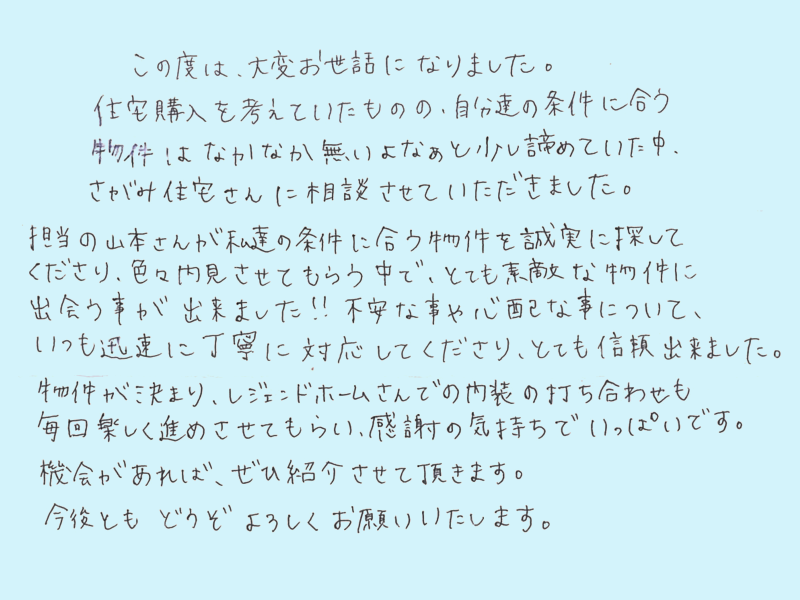 この度は、大変お世話になりました。
住宅購入を考えていたものの、自分達の条件に合う
物件はなかなか無いよなぁと少し諦めていた中、
さがみ住宅さんに相談させていただきました。
担当の山本さんが私達の条件に合う物件を誠実に探して
くださり、色々内見させてもらう中で、とても素敵な物件に
出会う事が出来ました!! 不安な事や心配な事について、
いつも迅速に丁寧に対応してくださり、とても信頼出来ました。
物件が決まり、レジェンドホームさんでの内装の打ち合わせも
毎回楽しく進めさせてもらい、感謝の気持ちでいっぱいです。
機会があれば、ぜひ紹介させて頂きます。
今後とも どうぞ よろしくお願いいたします。